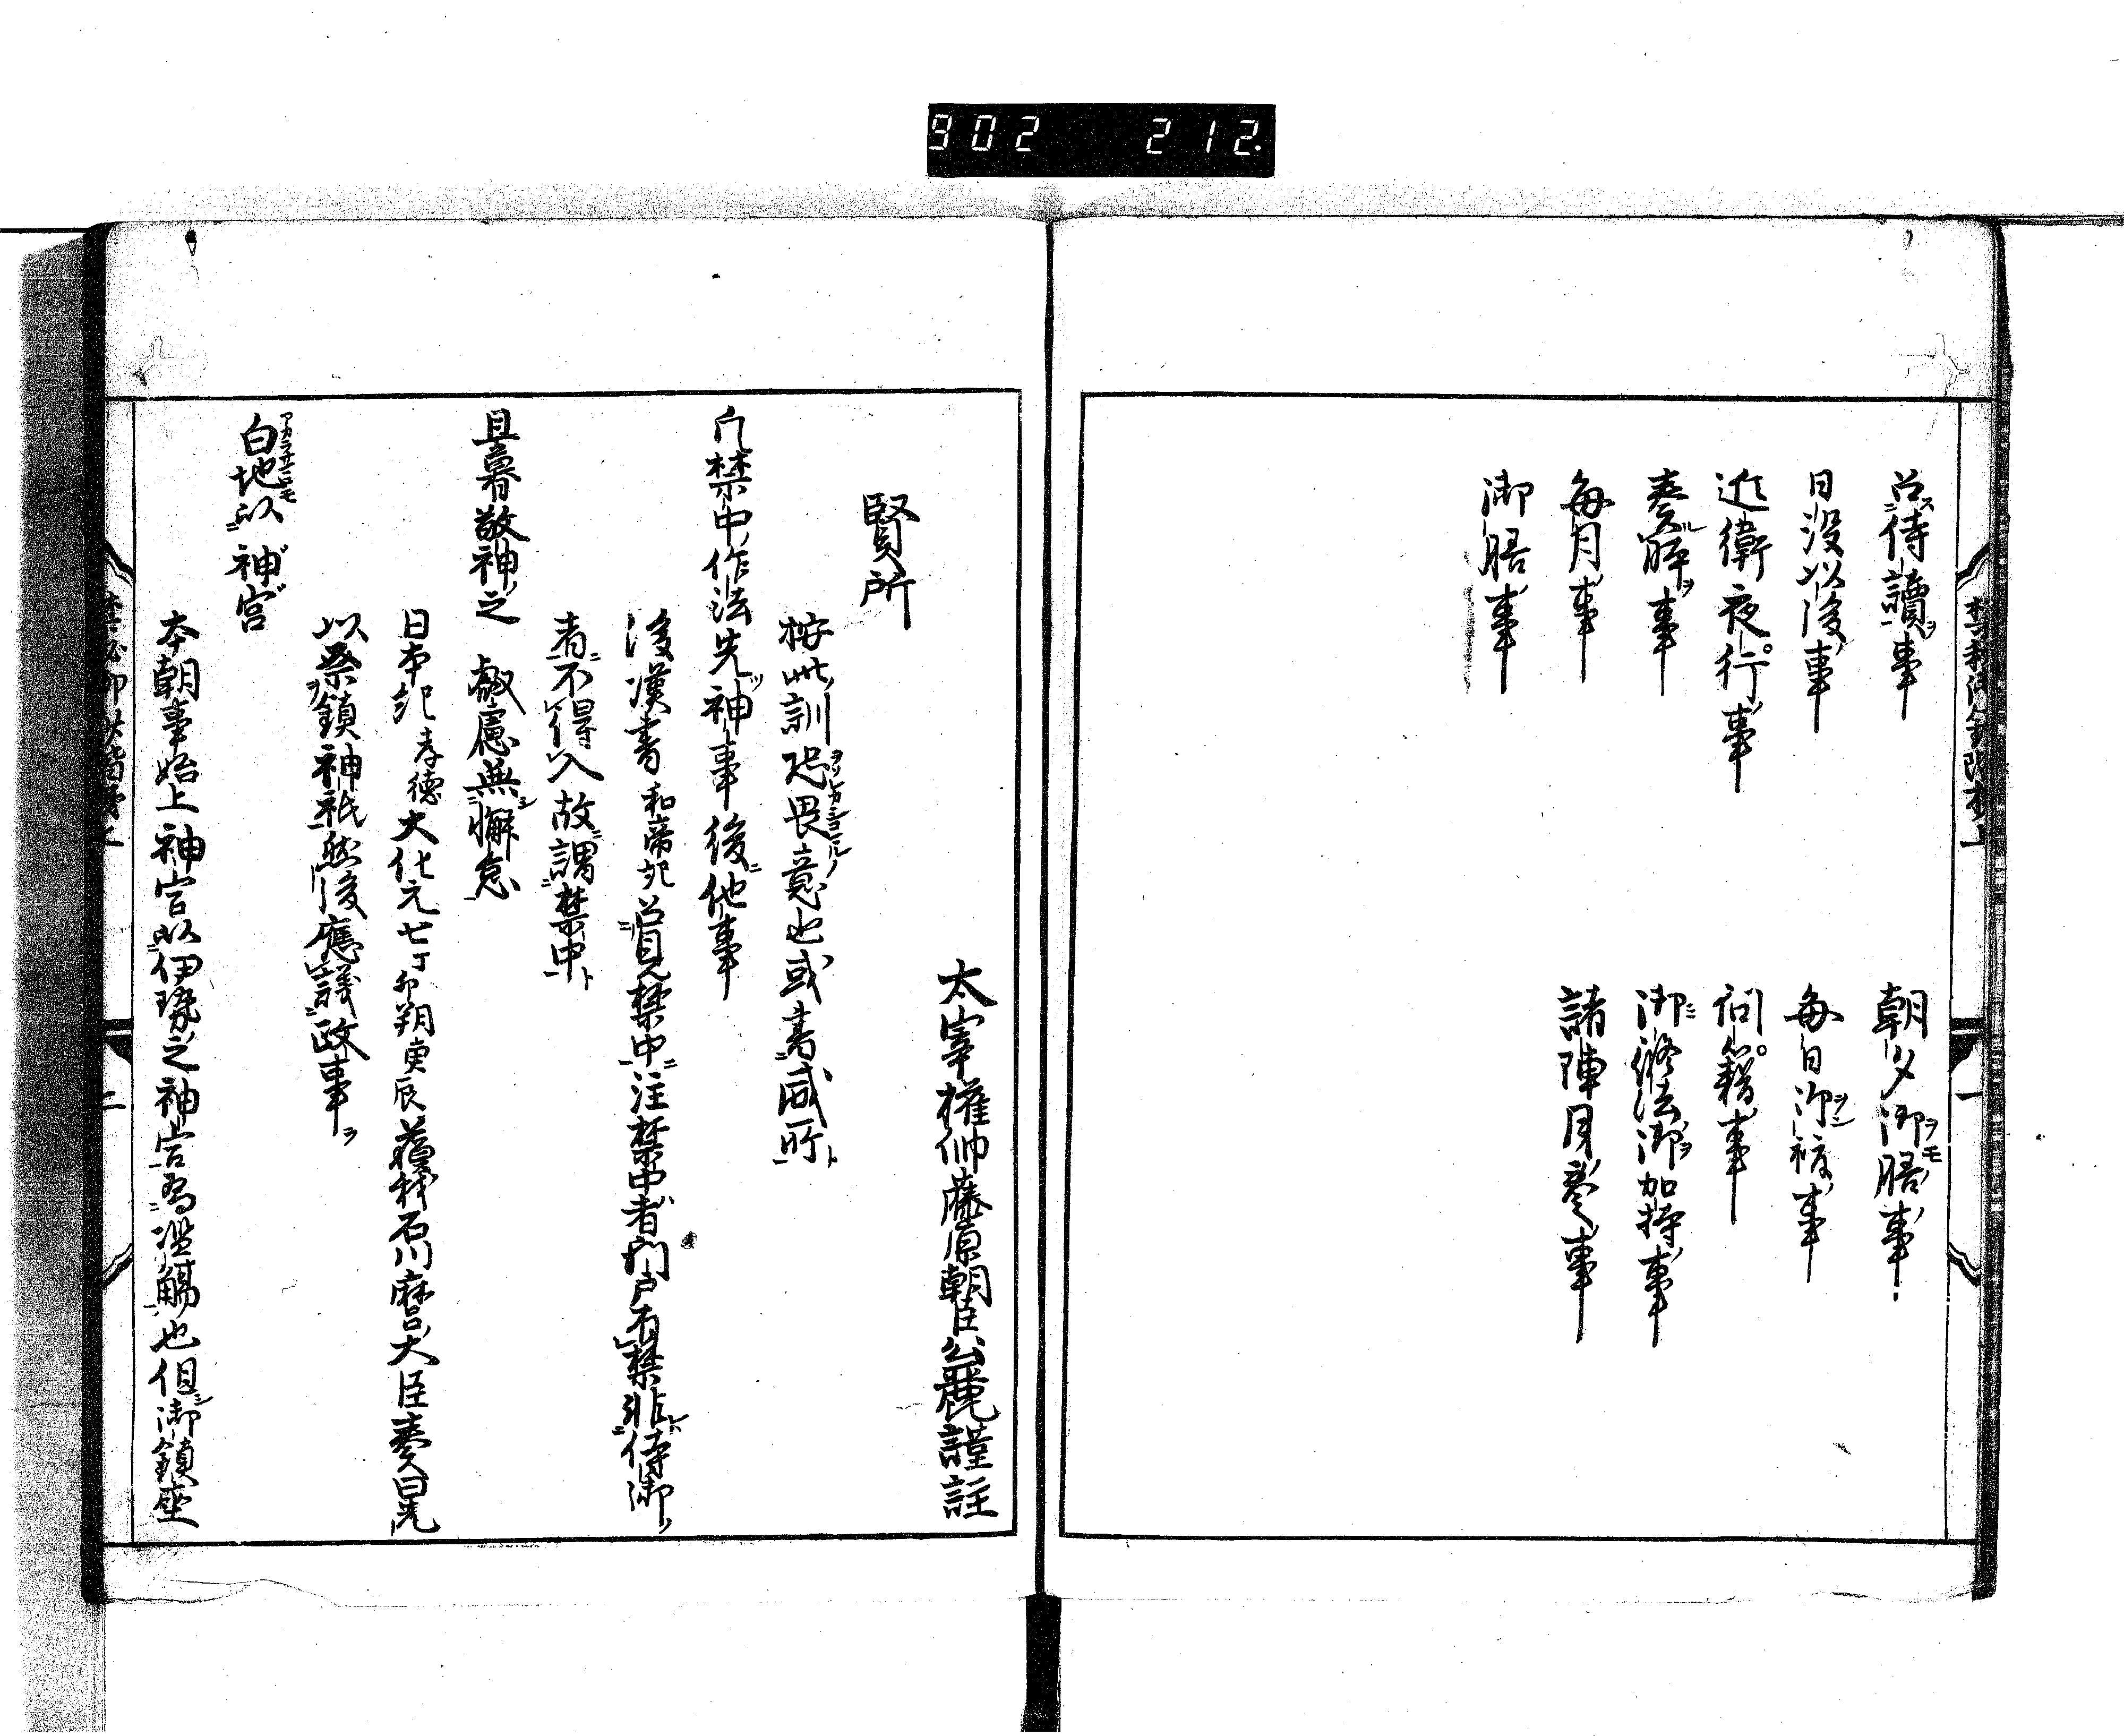 902 212.
召侍讀事
朝夕御膳事
日没以後事
毎日御祓事
近衛夜行事
問籍事
奏解事
御修法御加持事
毎月事
諸陣月奏事
御膳事
太宰權帥藤原朝臣公麗謹註
賢所
按此訓恐畏意也或書威所
凡禁中作法先神事後他事
後漢書和帝記召見禁中注禁中者門戸有禁非侍御
者不得入故謂禁中
旦暮敬神之叡慮無懈怠
日本記孝德大化元七丁卯朔庚辰蘇我石川麿大臣奏曰先
以祭鎮神祇然後應議政事
白地以神宮
本朝事始上神宮以伊勢之神宮為濫觴也但御鎮座